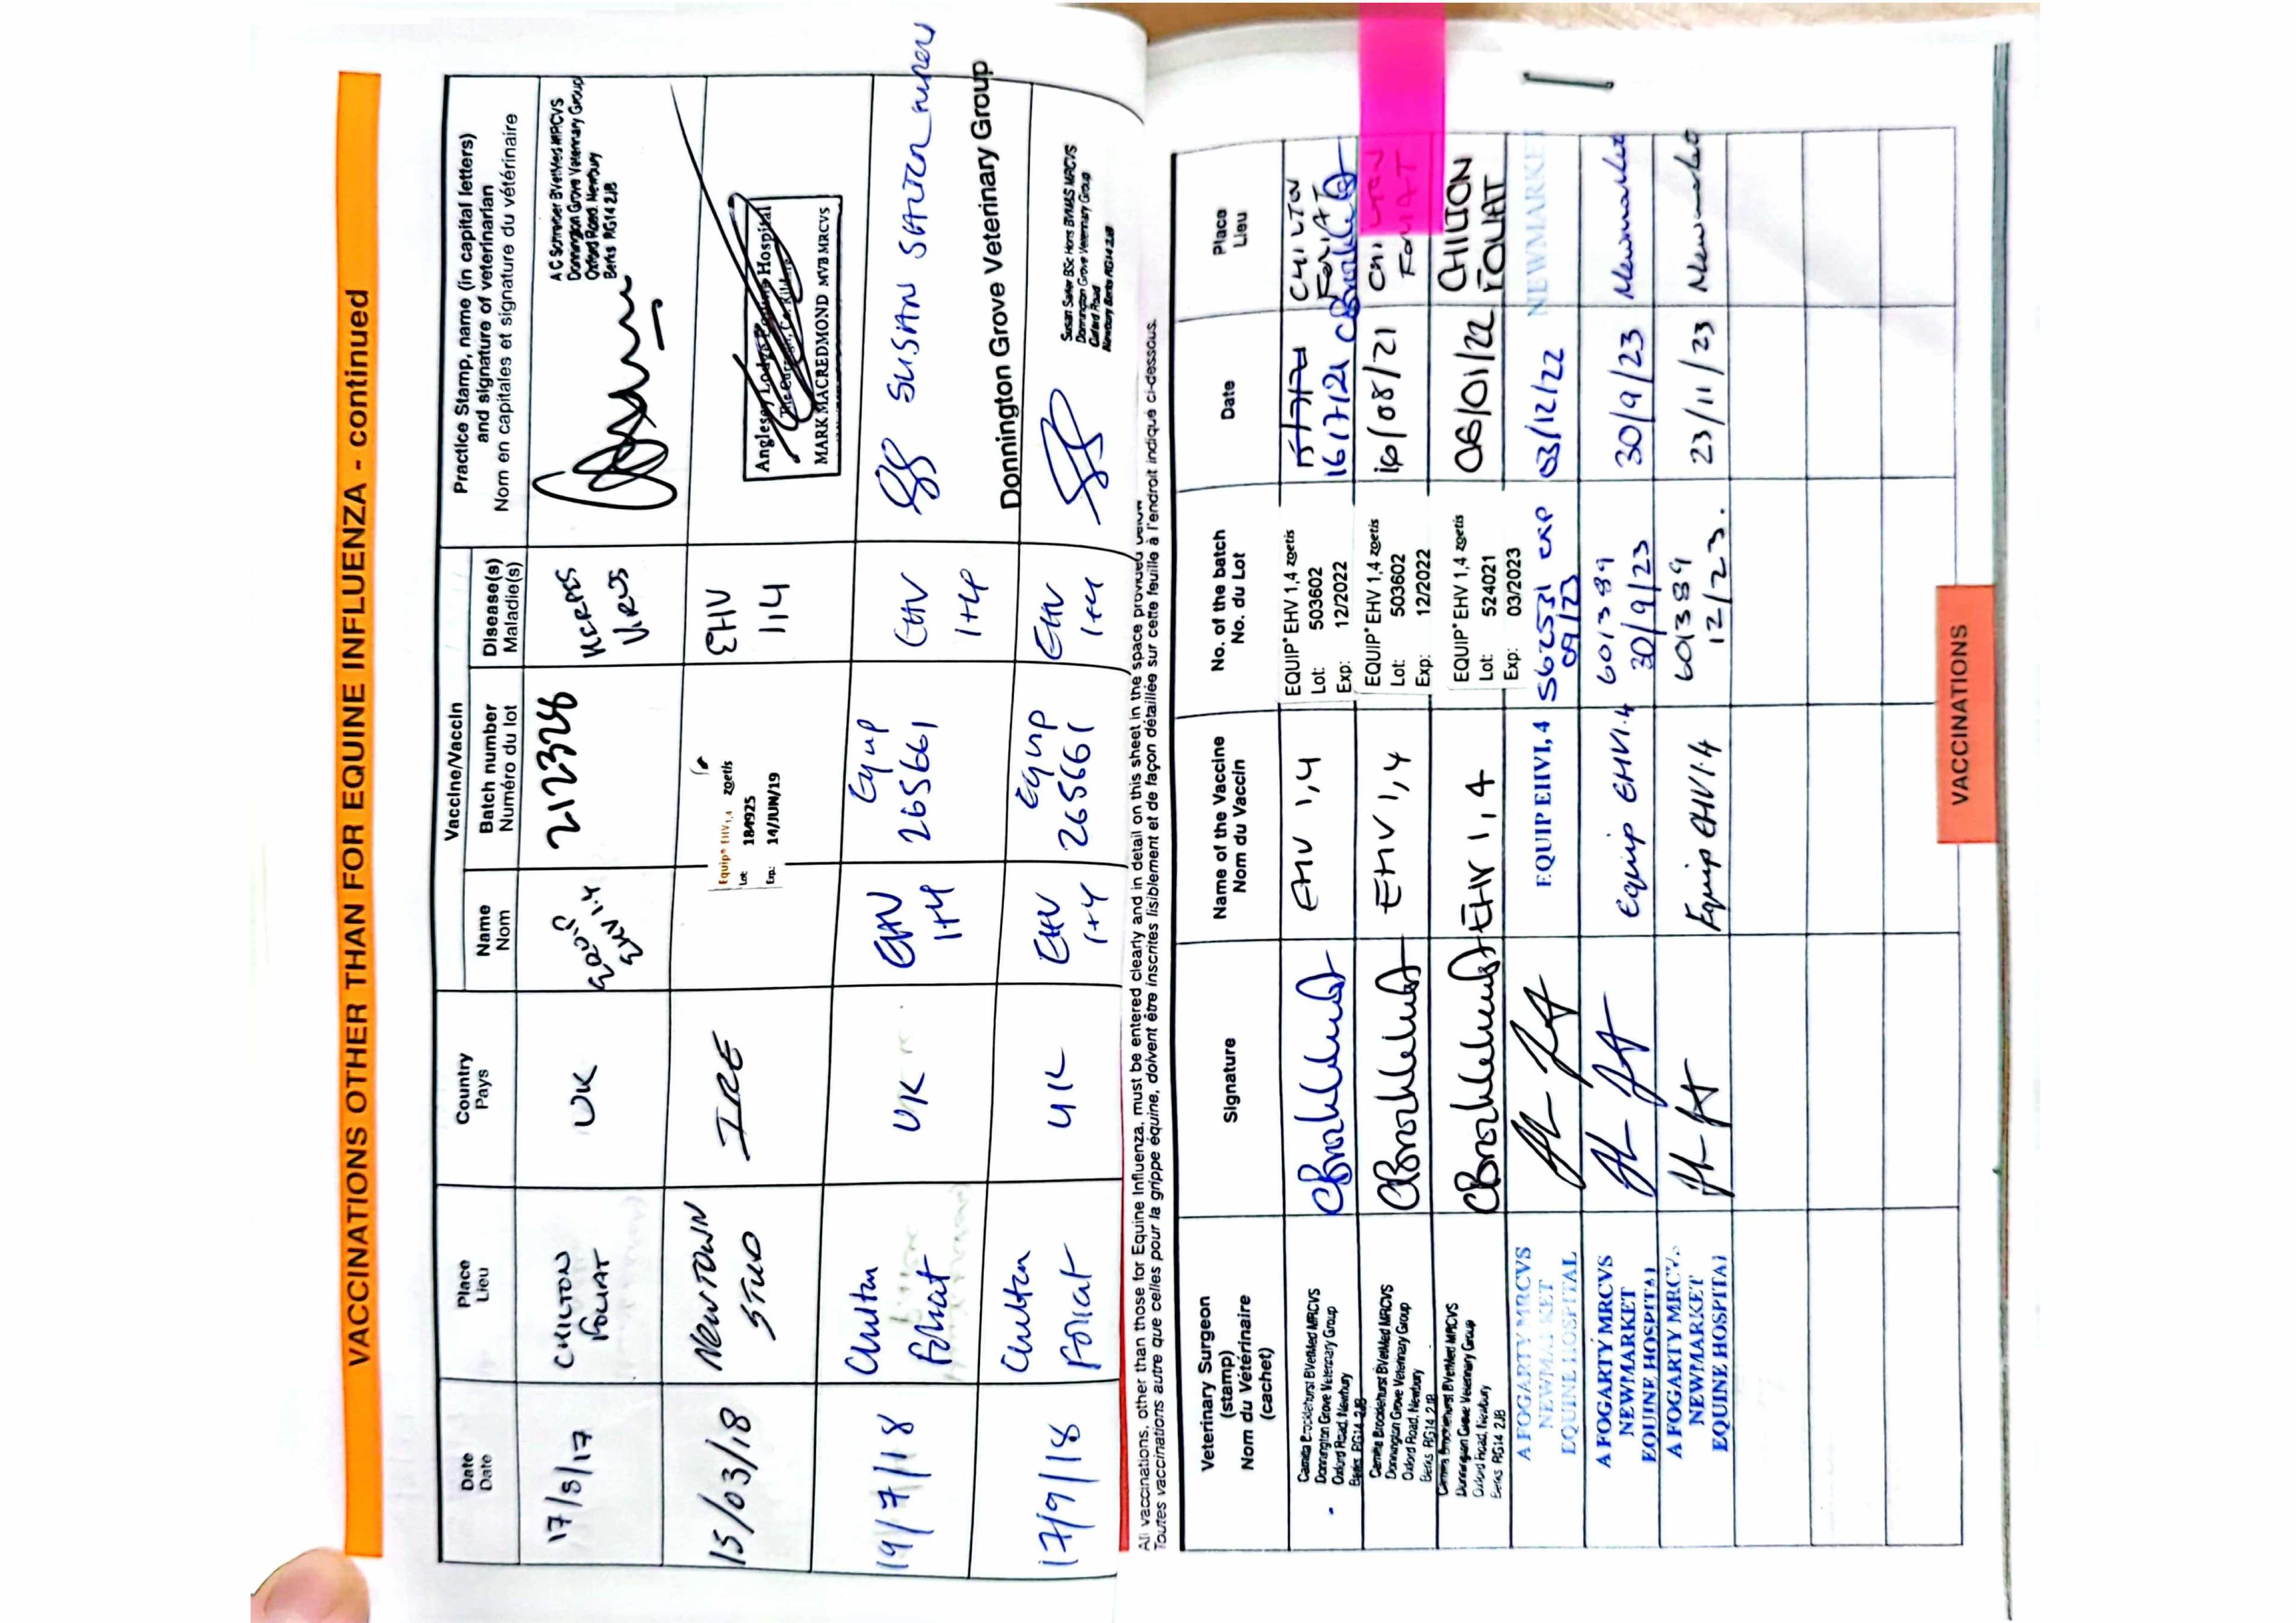 VACCINATIONS OTHER THAN FOR EQUINE INFLUENZA - continued
Date
Date
Place
Lieu
Country
Pays
Vaccine/Vaccin
Name
Nom
Batch number
Numéro du lot
Disease(s)
Maladie(s)
Practice Stamp, name (in capital letters)
and signature of veterinarian
Nom en capitales et signature du vétérinaire
17/8/17
CHILTON
FOLIAT
UK
EQUIP
EHV 1.4
212328
HERPES
VIRUS
A C Schreiber BVetMed MRCVS
Donnington Grove Veterinary Group
Oxford Road, Newbury
Berks RG14 2JB
15/03/18
NEWTOWN
STUD
IRE
Equip® EHV1,4 zoetis
Lot: 184925
Exp: 14/JUN/19
EHV
1,4
Anglesey Lodge Equine Hospital
The Curragh, Co. Kildare
MARK MACREDMOND MVB MRCVS
19/7/18
Chilton
Foliat
UK
EHV
1+4
Equip
265661
EHV
1+4
SUSAN SALTER
Donnington Grove Veterinary Group
17/9/18
Chilton
Foliat
UK
EHV
1+4
Equip
265661
EHV
1+4
Susan Salter BSc Hons BVM&S MRCVS
Donnington Grove Veterinary Group
Oxford Road
Newbury Berks RG14 2JB
All vaccinations, other than those for Equine Influenza, must be entered clearly and in detail on this sheet in the space provided below
Toutes vaccinations autre que celles pour la grippe équine, doivent être inscrites lisiblement et de façon détaillée sur cette feuille à l'endroit indique ci-dessous.
Veterinary Surgeon
(stamp)
Nom du Vétérinaire
(cachet)
Signature
Name of the Vaccine
Nom du Vaccin
No. of the batch
No. du Lot
Date
Place
Lieu
Camilla Brocklehurst BVetMed MRCVS
Donnington Grove Veterinary Group
Oxford Road, Newbury
Berks RG14 2JB
EHV 1,4
EQUIP® EHV 1,4 zoetis
Lot: 503602
Exp: 12/2022
16/7/21
CHILTON
FOLIAT
Camilla Brocklehurst BVetMed MRCVS
Donnington Grove Veterinary Group
Oxford Road, Newbury
Berks RG14 2JB
EHV 1,4
EQUIP® EHV 1,4 zoetis
Lot: 503602
Exp: 12/2022
16/08/21
CHILTON
FOLIAT
Camilla Brocklehurst BVetMed MRCVS
Donnington Grove Veterinary Group
Oxford Road, Newbury
Berks RG14 2JB
EHV 1,4
EQUIP® EHV 1,4 zoetis
Lot: 524021
Exp: 03/2023
06/01/22
CHILTON
FOLIAT
A FOGARTY MRCVS
NEWMARKET
EQUINE HOSPITAL
EQUIP EHV1, 4
562531 EXP
09/23
03/12/22
NEWMARKET
A FOGARTY MRCVS
NEWMARKET
EQUINE HOSPITAL
Equip EHV1.4
601389
30/9/23
30/9/23
Newmarket
A FOGARTY MRCVS
NEWMARKET
EQUINE HOSPITAL
Equip EHV1.4
601389
12/23.
23/11/23
Newmarket
VACCINATIONS